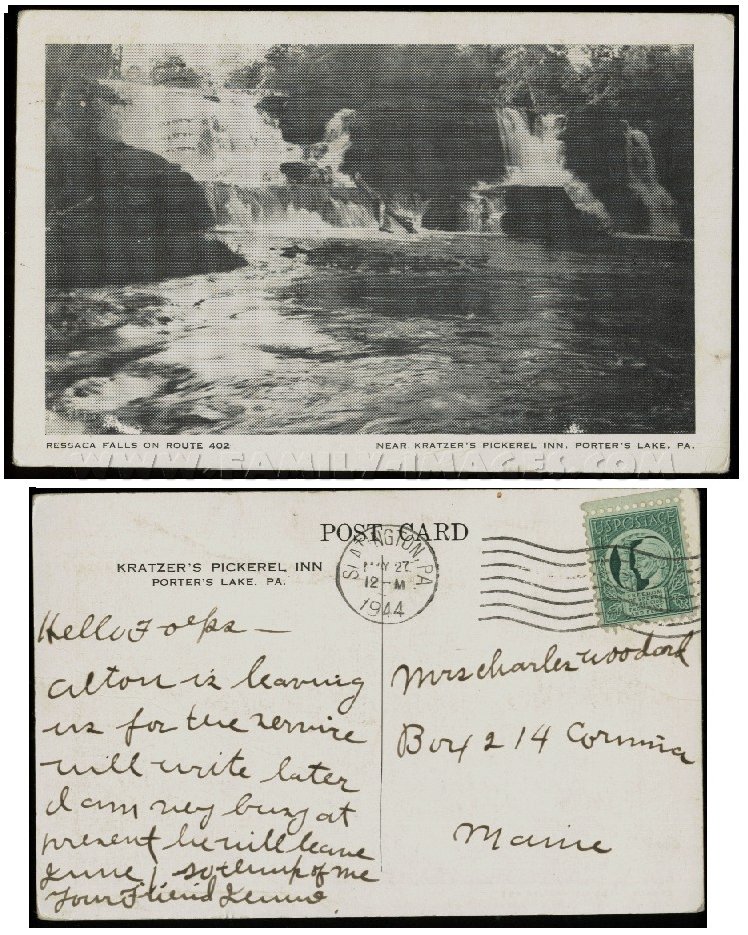 RESSACA FALLS ON ROUTE 402
NEAR KRATZER'S PICKEREL INN, PORTER'S LAKE, PA.
WWW.FAMILY-IMAGES.COM
POST CARD
KRATZER'S PICKEREL INN
PORTER'S LAKE, PA.
SLATINGTON, PA.
MAY 27
12-M
1944
US POSTAGE 1¢
Hello Folks —
Alton is leaving
us for the service
will write later
I am very busy at
present (he will leave
June) so think of me
Your Friend
Mrs Charles Woodard
Box 214 Corinna
Maine